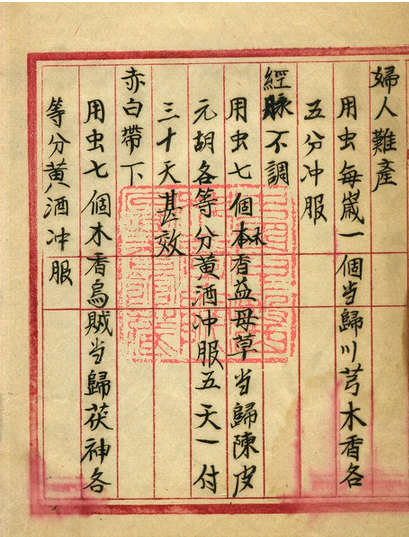 婦人難產
用虫每歲一個当歸川芎木香各
五分冲服
經脉不調
用虫七個木香益母草当歸陳皮
元胡各等分黄酒冲服五天一付
三十天甚效
赤白帶下
用虫七個木香烏賊当歸茯神各
等分黄酒冲服